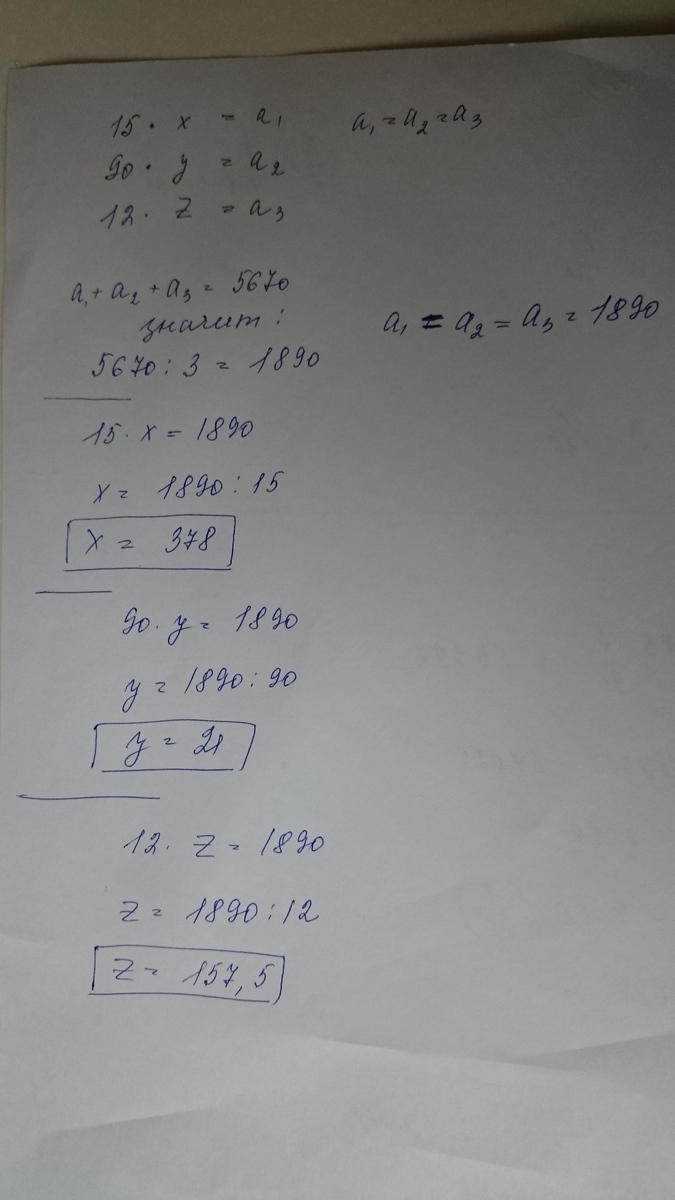 15 · x = a₁ a₁ = a₂ = a₃
90 · y = a₂
12 · z = a₃
a₁ + a₂ + a₃ = 5670
значит: a₁ = a₂ = a₃ = 1890
5670 : 3 = 1890
15 · x = 1890
x = 1890 : 15
x = 378
90 · y = 1890
y = 1890 : 90
y = 21
12 · z = 1890
z = 1890 : 12
z = 157,5